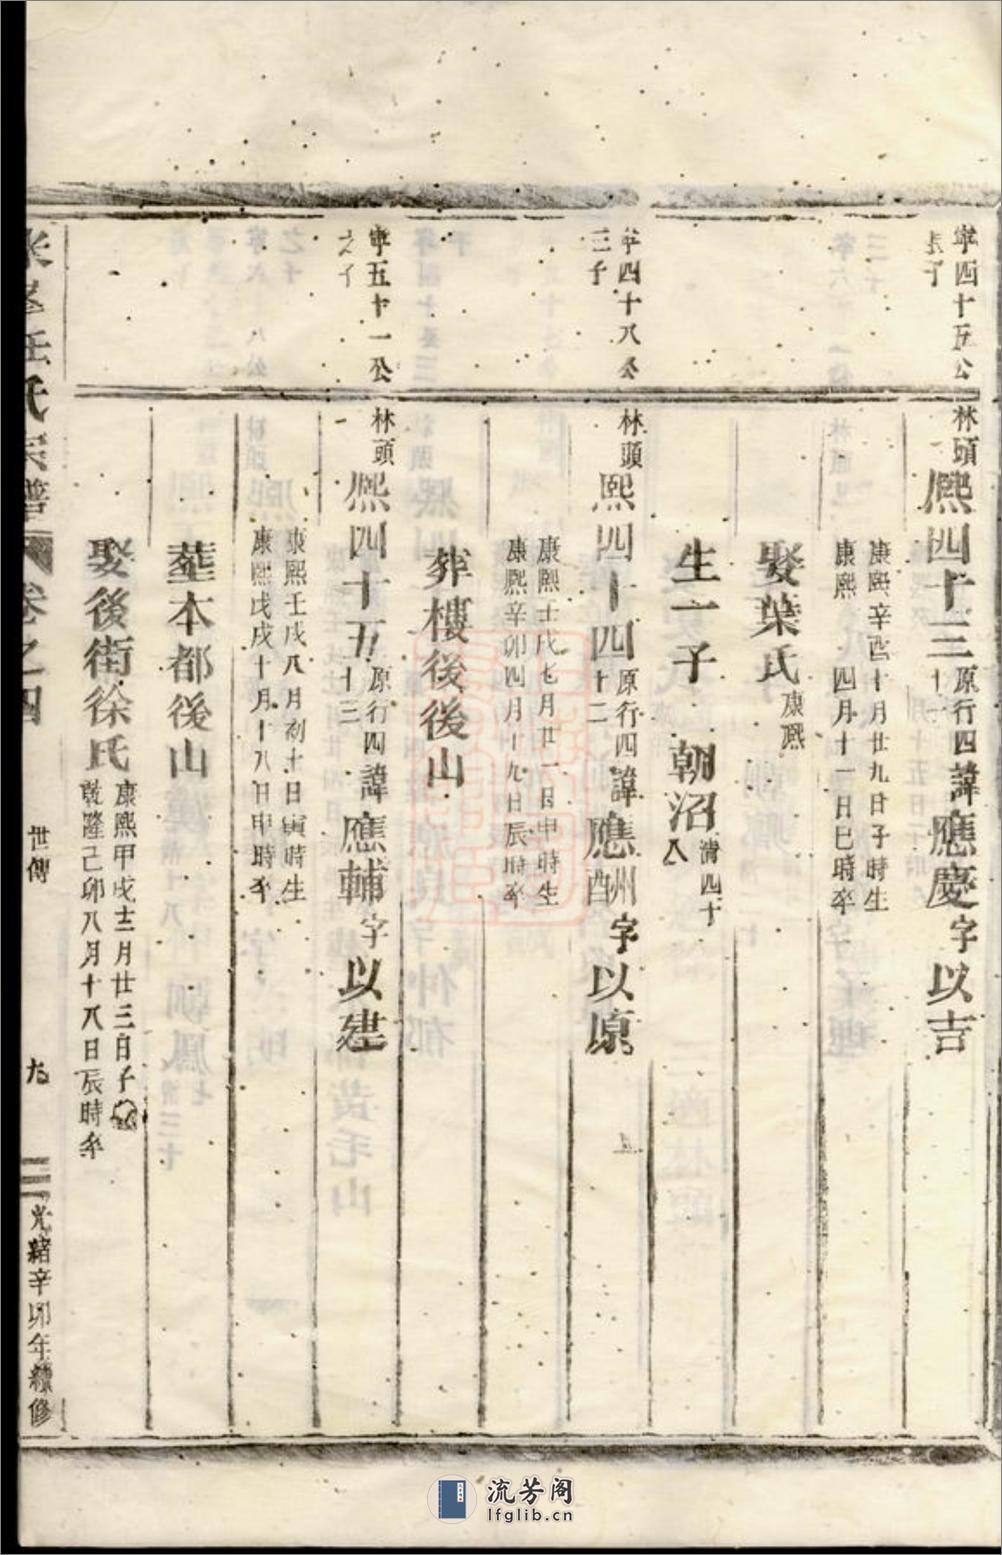 寧四十五公
長子
林頭熈四十三原行四十一諱應慶字以吉
康熙辛酉十月廿九日子時生
康熙 四月十一日巳時卒
娶葉氏康熙
生一子 朝沼清四十八
寧四十八公
三子
林頭熙四十四原行四十二諱應酬字以原
康熙壬戌七月廿一日申時生
康熙辛卯四月十九日辰時卒
葬樓後後山
寧五十一公
之子
林頭熈四十五原行四十三諱應輔字以建
康熙壬戌八月初十日寅時生
康熙戊戌十月十八日申時卒
塟本都後山
娶後街徐氏
康熙甲戌十二月廿三日子
乾隆己卯八月十八日辰時卒
氏宗譜 卷之四 世傳 九 光緒辛卯年續修
流芳阁
lfglib.cn